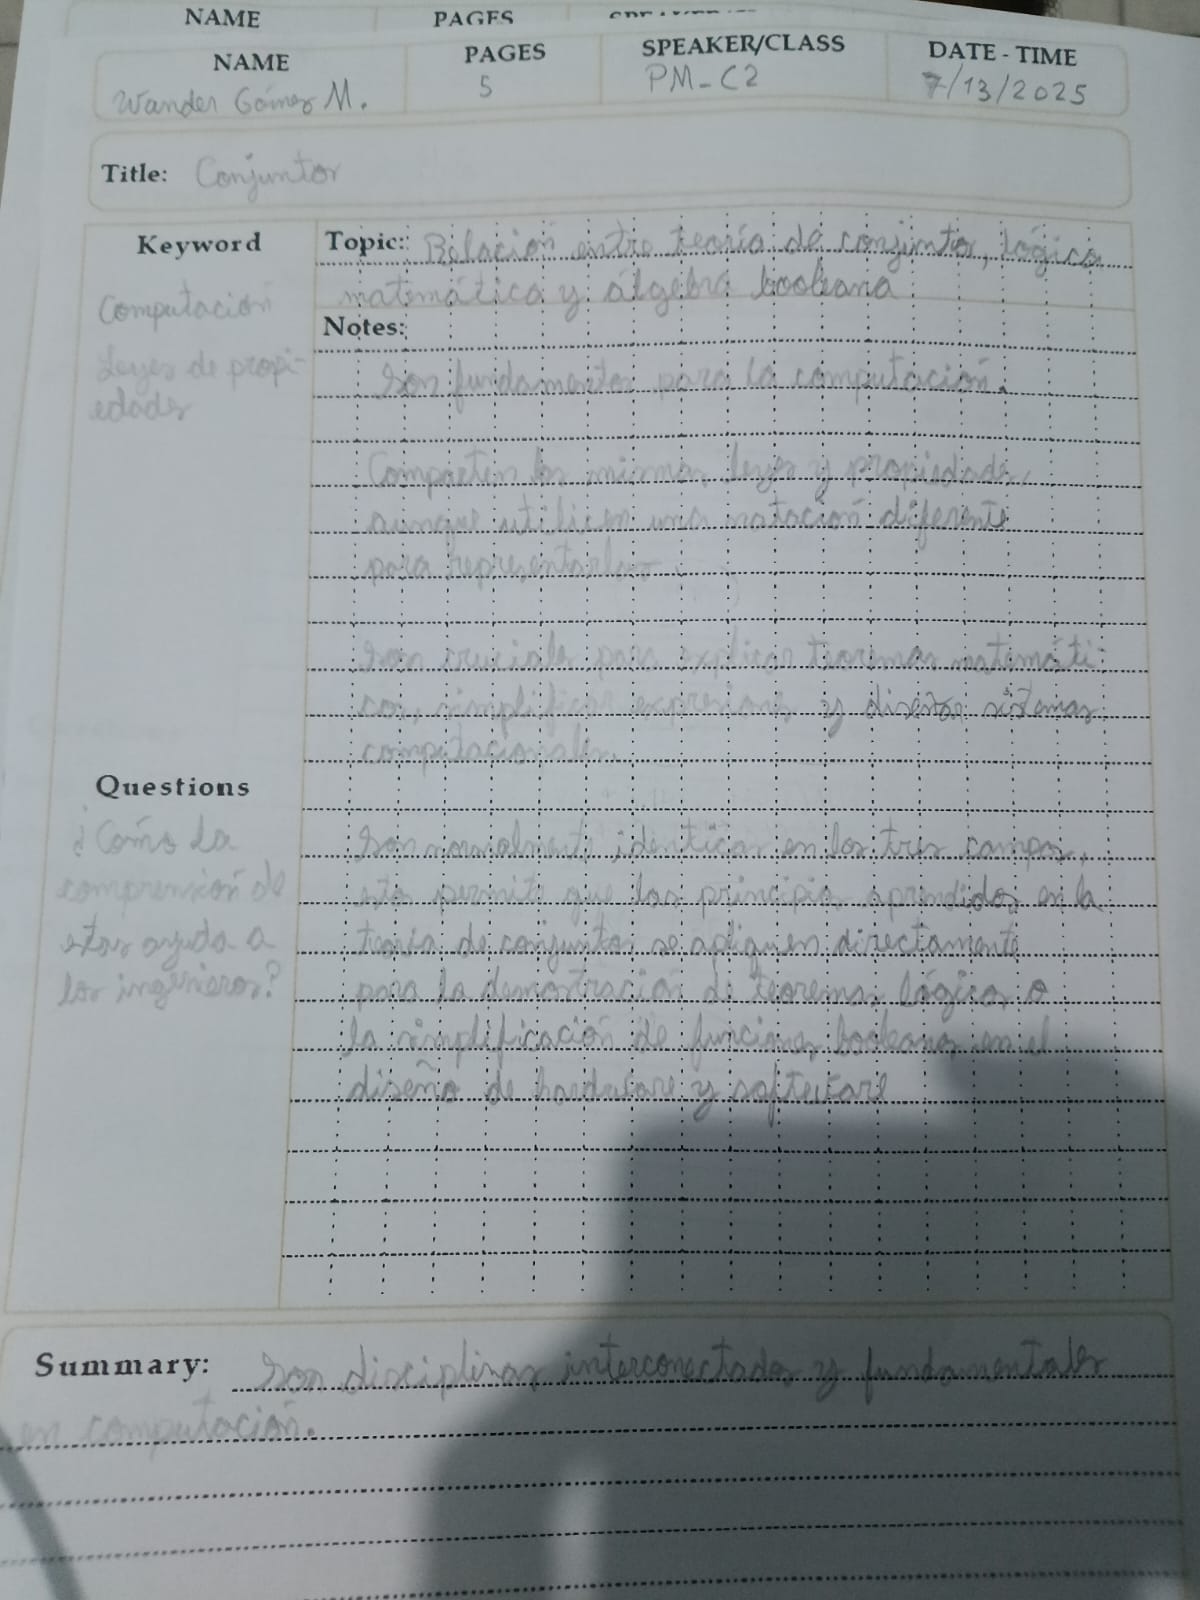 NAME PAGES
NAME PAGES SPEAKER/CLASS DATE - TIME
Wander Gómez M. 5 PM-C2 7/13/2025
Title: Conjuntos
Keyword
Computación
Leyes de propi-
edades
Topic: Relación entre teoría de conjuntos, lógica
matemática y álgebra booleana
Notes:
Son fundamentos para la computación.
Comparten las mismas leyes y propiedades,
aunque utilicen una notación diferente
para representarlas
Son cruciales para explicar teoremas matemáti-
cos, simplificar expresiones y diseñar sistemas
computacionales.
Questions
¿Cómo la
comprensión de
estas ayuda a
los ingenieros?
Son normalmente identicas en los tres campos,
esto permite que los principios aprendidos en la
teoría de conjuntos se apliquen directamente
para la demostración de teoremas lógicos o
la simplificación de funciones booleanas en el
diseño de hardware y software
Summary: Son disciplinas interconectadas y fundamentales
en computación.